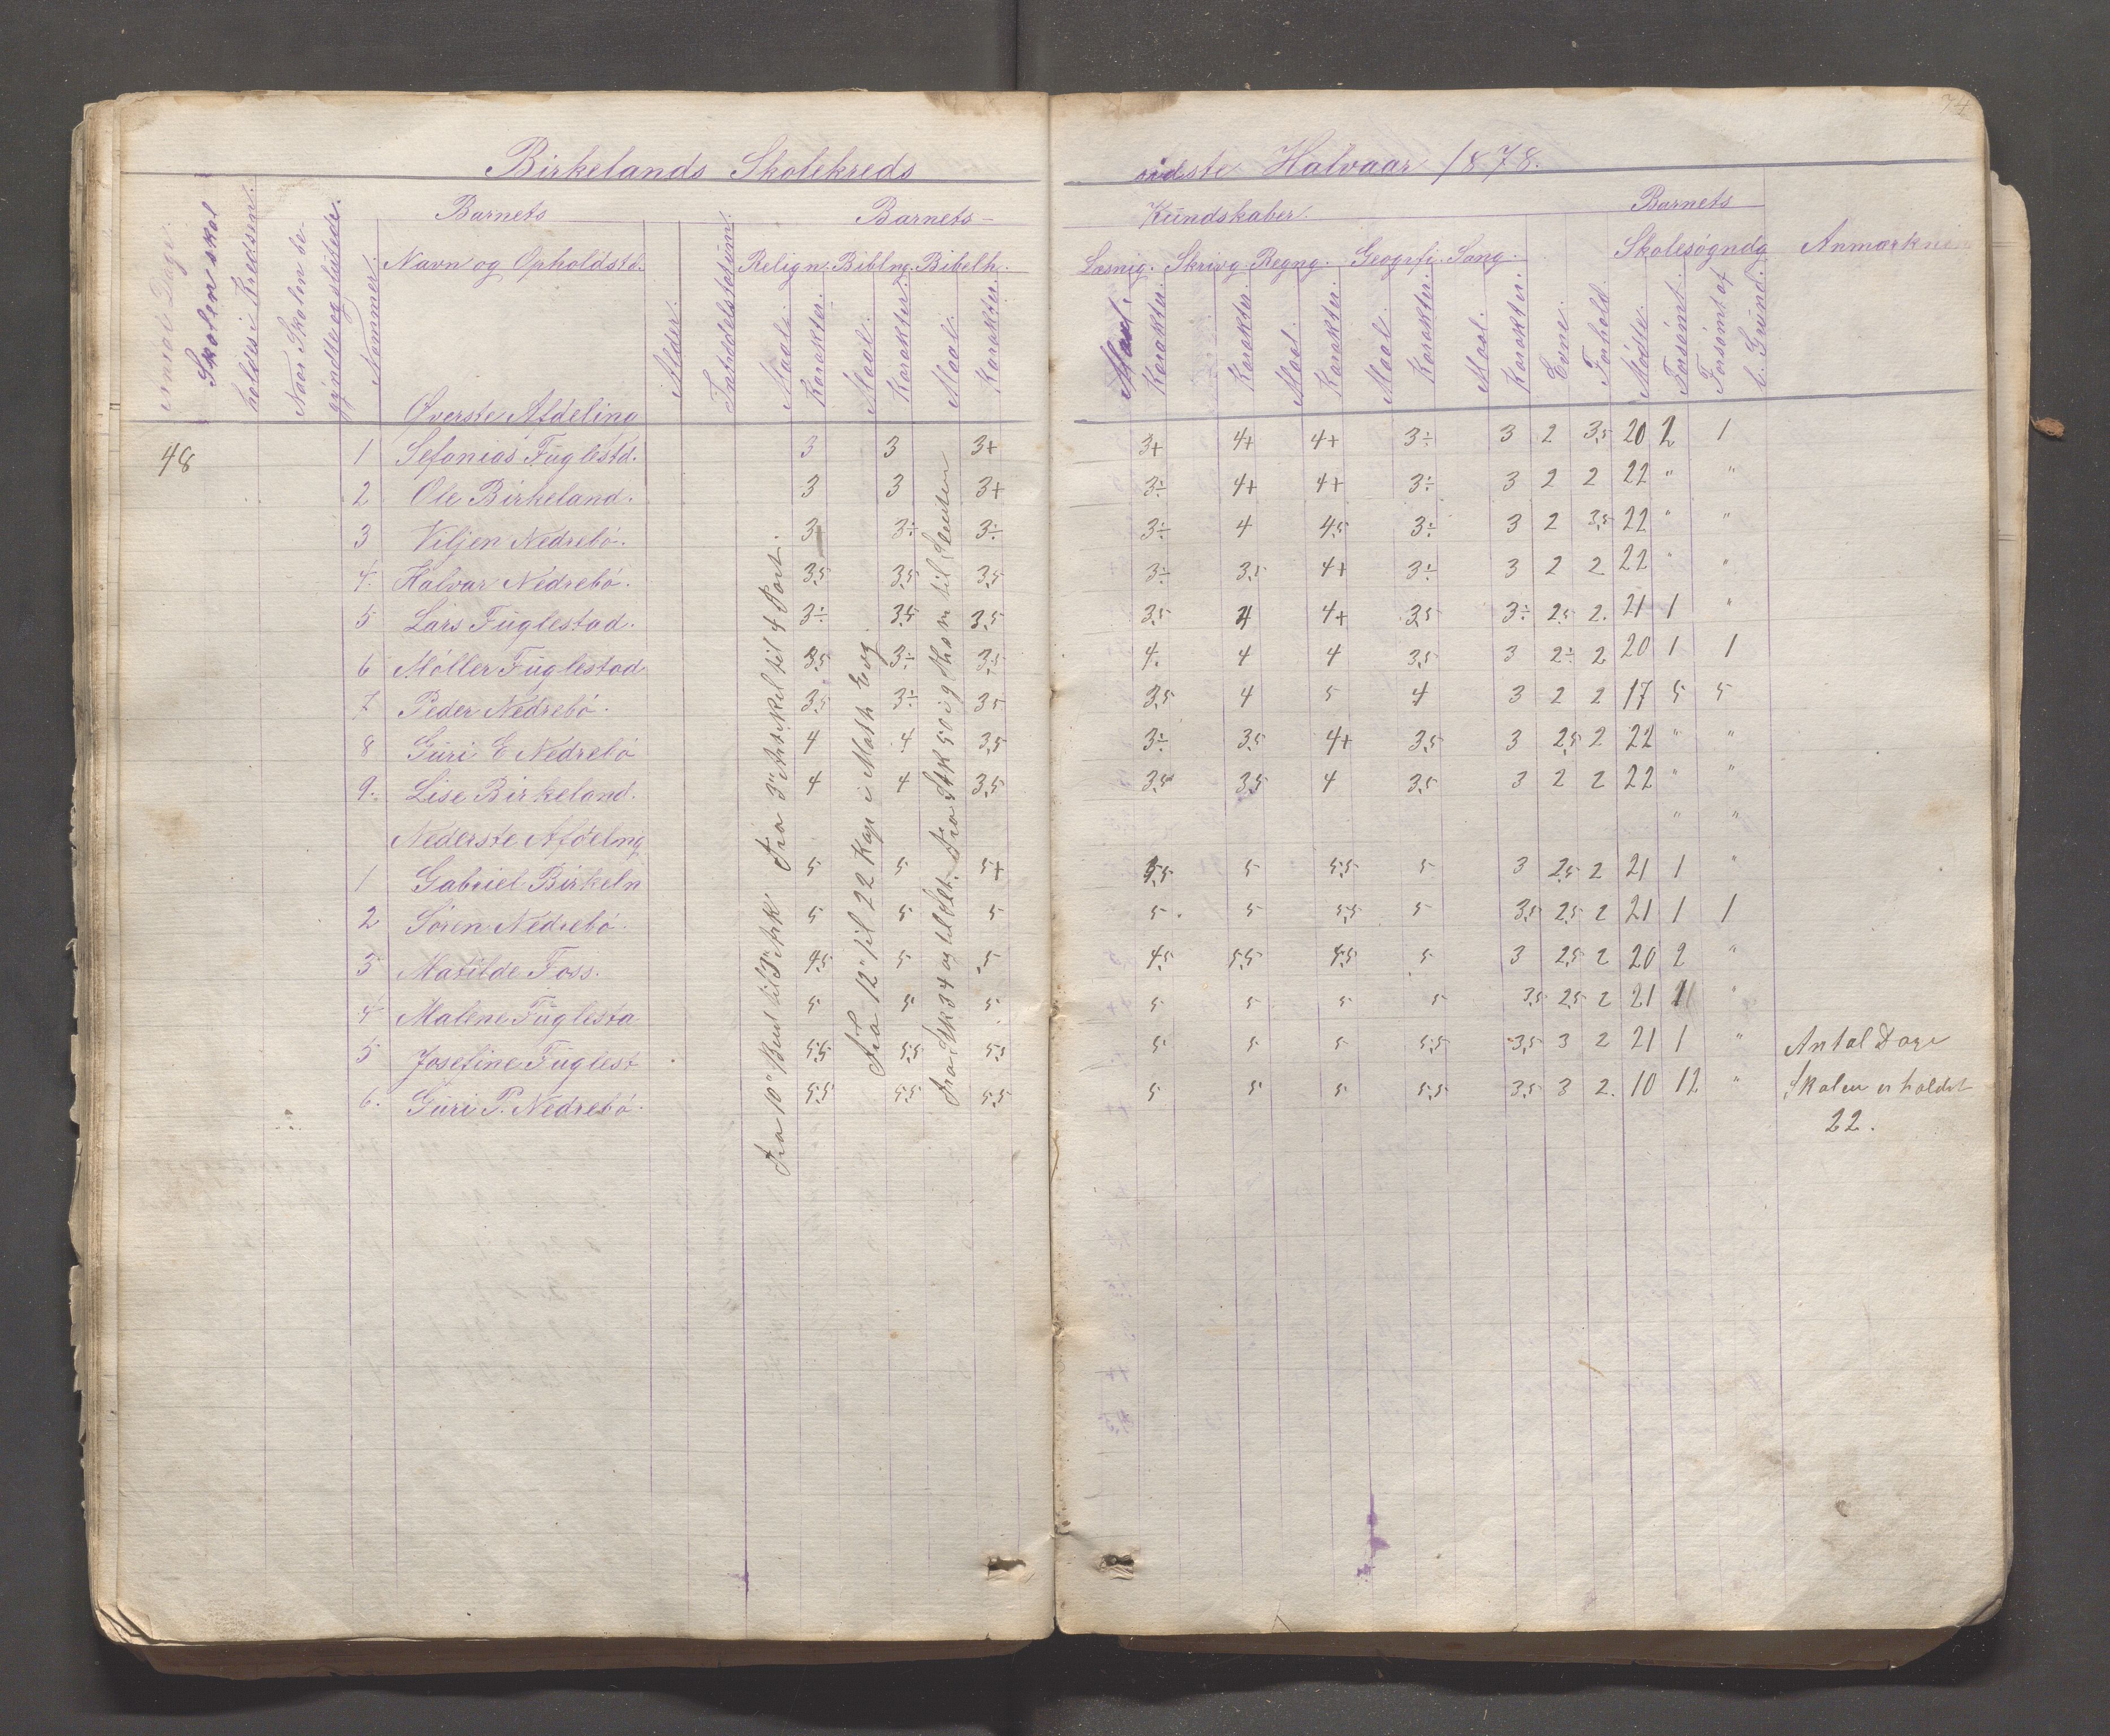 74
Birkelands Skolekreds
sidste Halvaar 1878.
Antal Dage
Skolen skal
holdes i Kredsen.
Naar Skolen be-
gyndte og sluttede.
Nummer.
Barnets
Navn og Opholdstd.
Alder.
Indtrædelsesdatum.
Barnets-
Kundskaber.
Relign. Biblng. Bibelh.
Læsnig. Skrivg Regng. Geogrfi. Sang.
Maal. Karakter. Maal. Karakter. Maal. Karakter.
Maal. Karakter. Karakter. Maal. Karakter. Maal. Karakter. Maal. Karakter.
Evne. Forhold.
Barnets
Skolesøgndg
Mødte. Forsømt. Forsømt af l. Grund.
Anmærknin
Øverste Afdeling
48 1 Sefanias Fuglestd. 3 3 3+ 3+ 4+ 4+ 3÷ 3 2 3,5 20 2 1
2 Ole Birkeland. 3 3 3+ 3÷ 4+ 4+ 3÷ 3 2 2 22 " "
3 Viljen Nedrebø. 3 3÷ 3÷ 3÷ 4 4,5 3÷ 3 2 3,5 22 " "
4. Halvar Nedrebø. 3,5 3,5 3,5 3÷ 3,5 4+ 3÷ 3 2 2 22 " "
5 Lars Fuglestad. 3÷ 3,5 3,5 3,5 4 4+ 3,5 3÷ 2,5 2. 21 1 "
6 Møller Fuglestad 3,5 3÷ 3,5 4. 4 4 3,5 3 2÷ 2 20 1 1
7 Peder Nedrebø. 3,5 3÷ 3,5 3,5 4 5 4 3 2 2 17 5 5
8 Guri E Nedrebø 4 4 3,5 3÷ 3,5 4+ 3,5 3 2,5 2 22 " "
9. Lise Birkeland. 4 4 3,5 3,5 3,5 4 3,5 3 2 2 22 " "
Nederste Afdeling " "
1 Gabriel Birkeln 5 5 5+ 5,5 5 5,5 5 3 2,5 2 21 1 "
2 Søren Nedrebø. 5 5 5 5. 5 5,5 5 3,5 2,5 2 21 1 1
3 Matilde Foss. 4,5 5 5 4,5 5,5 4,5 5 3 2,5 2 20 2 "
4 Malene Fuglesta 5 5 5 5 5 5 5 3,5 2,5 2 21 1 "
5 Josefine Fuglest 5,5 5,5 5,5 5 5 5 5,5 3,5 3 2 21 1 "
6. Guri P. Nedrebø. 5,5 5,5 5,5 5 5 5 5,5 3,5 3 2. 10 12 "
Fra 10" Bud til 3" Artk" Fra 3" Artikel til 4 Part.
Fra 12" til 22 Kap i Math Evg.
Fra Stk 34 og til Fra Stk 50 og til
Antal Dage
Skolen er holdet
22.